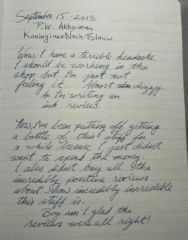 September 15 - 2013
P.W. Akkerman
Koninginne Nach-Blauw
Wow, I have a terrible headache
I should be working in the
shop but I'm just not
feeling it. Almost dizzy
so I'm writing an
ink review.
Now, I've been putting off getting
a bottle of this stuff for
a while because I just didn't
want to spend the money.
I also didn't buy all the
incredibly positive reviews
about how incredibly incredible
this stuff is.
Boy am I glad the
reviews were all right!